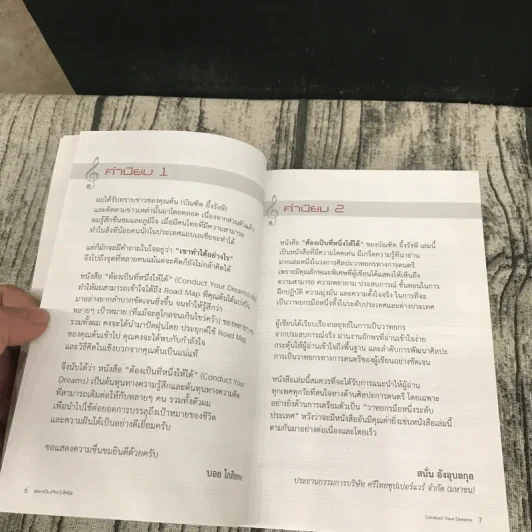 คำนิยม 1
ผมได้รับทราบข่าวของคุณต้น (บัณฑิต อึ้งรังษี)
และติดตามข่าวเหล่านั้นมาโดยตลอด เนื่องจากส่วนตัวแล้ว
ผมรู้สึกชื่นชมและภูมิใจ เมื่อมีคนไทยที่มีความสามารถ
ทำในสิ่งที่น้อยคนนักในประเทศแถบเอเชียจะทำได้
แต่ก็มักจะมีคำถามในใจอยู่ว่า "เขาทำได้อย่างไร"
จึงไปถึงจุดที่หลายคนแม้แต่จะคิดก็ยังไม่กล้าคิดได้
หนังสือ "ต้องเป็นที่หนึ่งให้ได้" (Conduct Your Dreams)
ทำให้ผมสามารถเข้าใจได้ถึง Road Map ที่คุณต้นได้
มาอย่างยากลำบากชัดเจนยิ่งขึ้น จนทำให้รู้สึกว่า
หลายๆ เป้าหมาย (ที่แม้จะดูไกลจนเกินไขว่คว้า) ของหลายๆ คน
รวมทั้งผม คงจะได้นำมาปัดฝุ่นโดย ประยุกต์ใช้ Road Map
ของคุณต้นเข้าไป คุณคงจะได้พบกับกำลังใจ
และวิธีคิดในเชิงบวกจากคุณต้นเป็นแม่แท้
จึงนับได้ว่า หนังสือ "ต้องเป็นที่หนึ่งให้ได้" (Conduct Your
Dreams) เป็นต้นทุนทางความรู้สึกและต้นทุนทางความคิด
ที่สามารถเติมต่อให้กับหลายๆ คน รวมทั้งตัวผม
เพื่อนำไปใช้ต่อยอดการบรรลุถึงเป้าหมายของชีวิต
และความฝันได้เป็นอย่างดีเยี่ยมครับ
ขอแสดงความชื่นชมยินดีด้วยครับ
บอย โกสิยพงษ์
6 ต้องเป็นที่หนึ่งให้ได้
คำนิยม 2
หนังสือ "ต้องเป็นที่หนึ่งให้ได้" ของบัณฑิต อึ้งรังษี เล่มนี้
เป็นหนังสือที่มีความโดดเด่น มีเกร็ดความรู้ที่น่าอ่าน
มากเล่มหนึ่งในวงการศิลปะวาทยกรทางการดนตรี
เพราะมีคุณลักษณะพิเศษที่ผู้เขียนได้แสดงให้เห็นถึง
ความสามารถ ความพยายาม ประสบการณ์ ขั้นตอนในการ
ฝึกปฏิบัติ ความมุ่งมั่น และความตั้งใจจริง ในการที่จะ
เป็นวาทยกรมือหนึ่งทั้งในระดับประเทศและต่างประเทศ
ผู้เขียนได้เรียบเรียงกลยุทธ์ในการเป็นวาทยกร
จากประสบการณ์จริง ผ่านงานอักษรที่อ่านเข้าใจง่าย
กระตุ้นให้ผู้อ่านเข้าใจถึงพื้นฐาน และลำดับการพัฒนาศิลปะ
การเป็นวาทยกรทางการดนตรีของผู้เขียนอย่างชัดเจน
หนังสือเล่มนี้สมควรที่จะได้รับการแนะนำให้ผู้อ่าน
ทุกเพศทุกวัยที่สนใจทางด้านศิลปะการดนตรี โดยเฉพาะ
อย่างยิ่งด้านการเตรียมตัวเป็น "วาทยกรมือหนึ่งระดับ
ประเทศ" หวังว่าจะมีหนังสืออันมีคุณค่ายิ่งเช่นหนังสือเล่มนี้
ตามกันมาอย่างต่อเนื่องและโดยเร็ว
สนั่น อังอุบลกุล
ประธานกรรมการบริษัท ศรีไทยซุปเปอร์แวร์ จำกัด (มหาชน)
Conduct Your Dreams 7